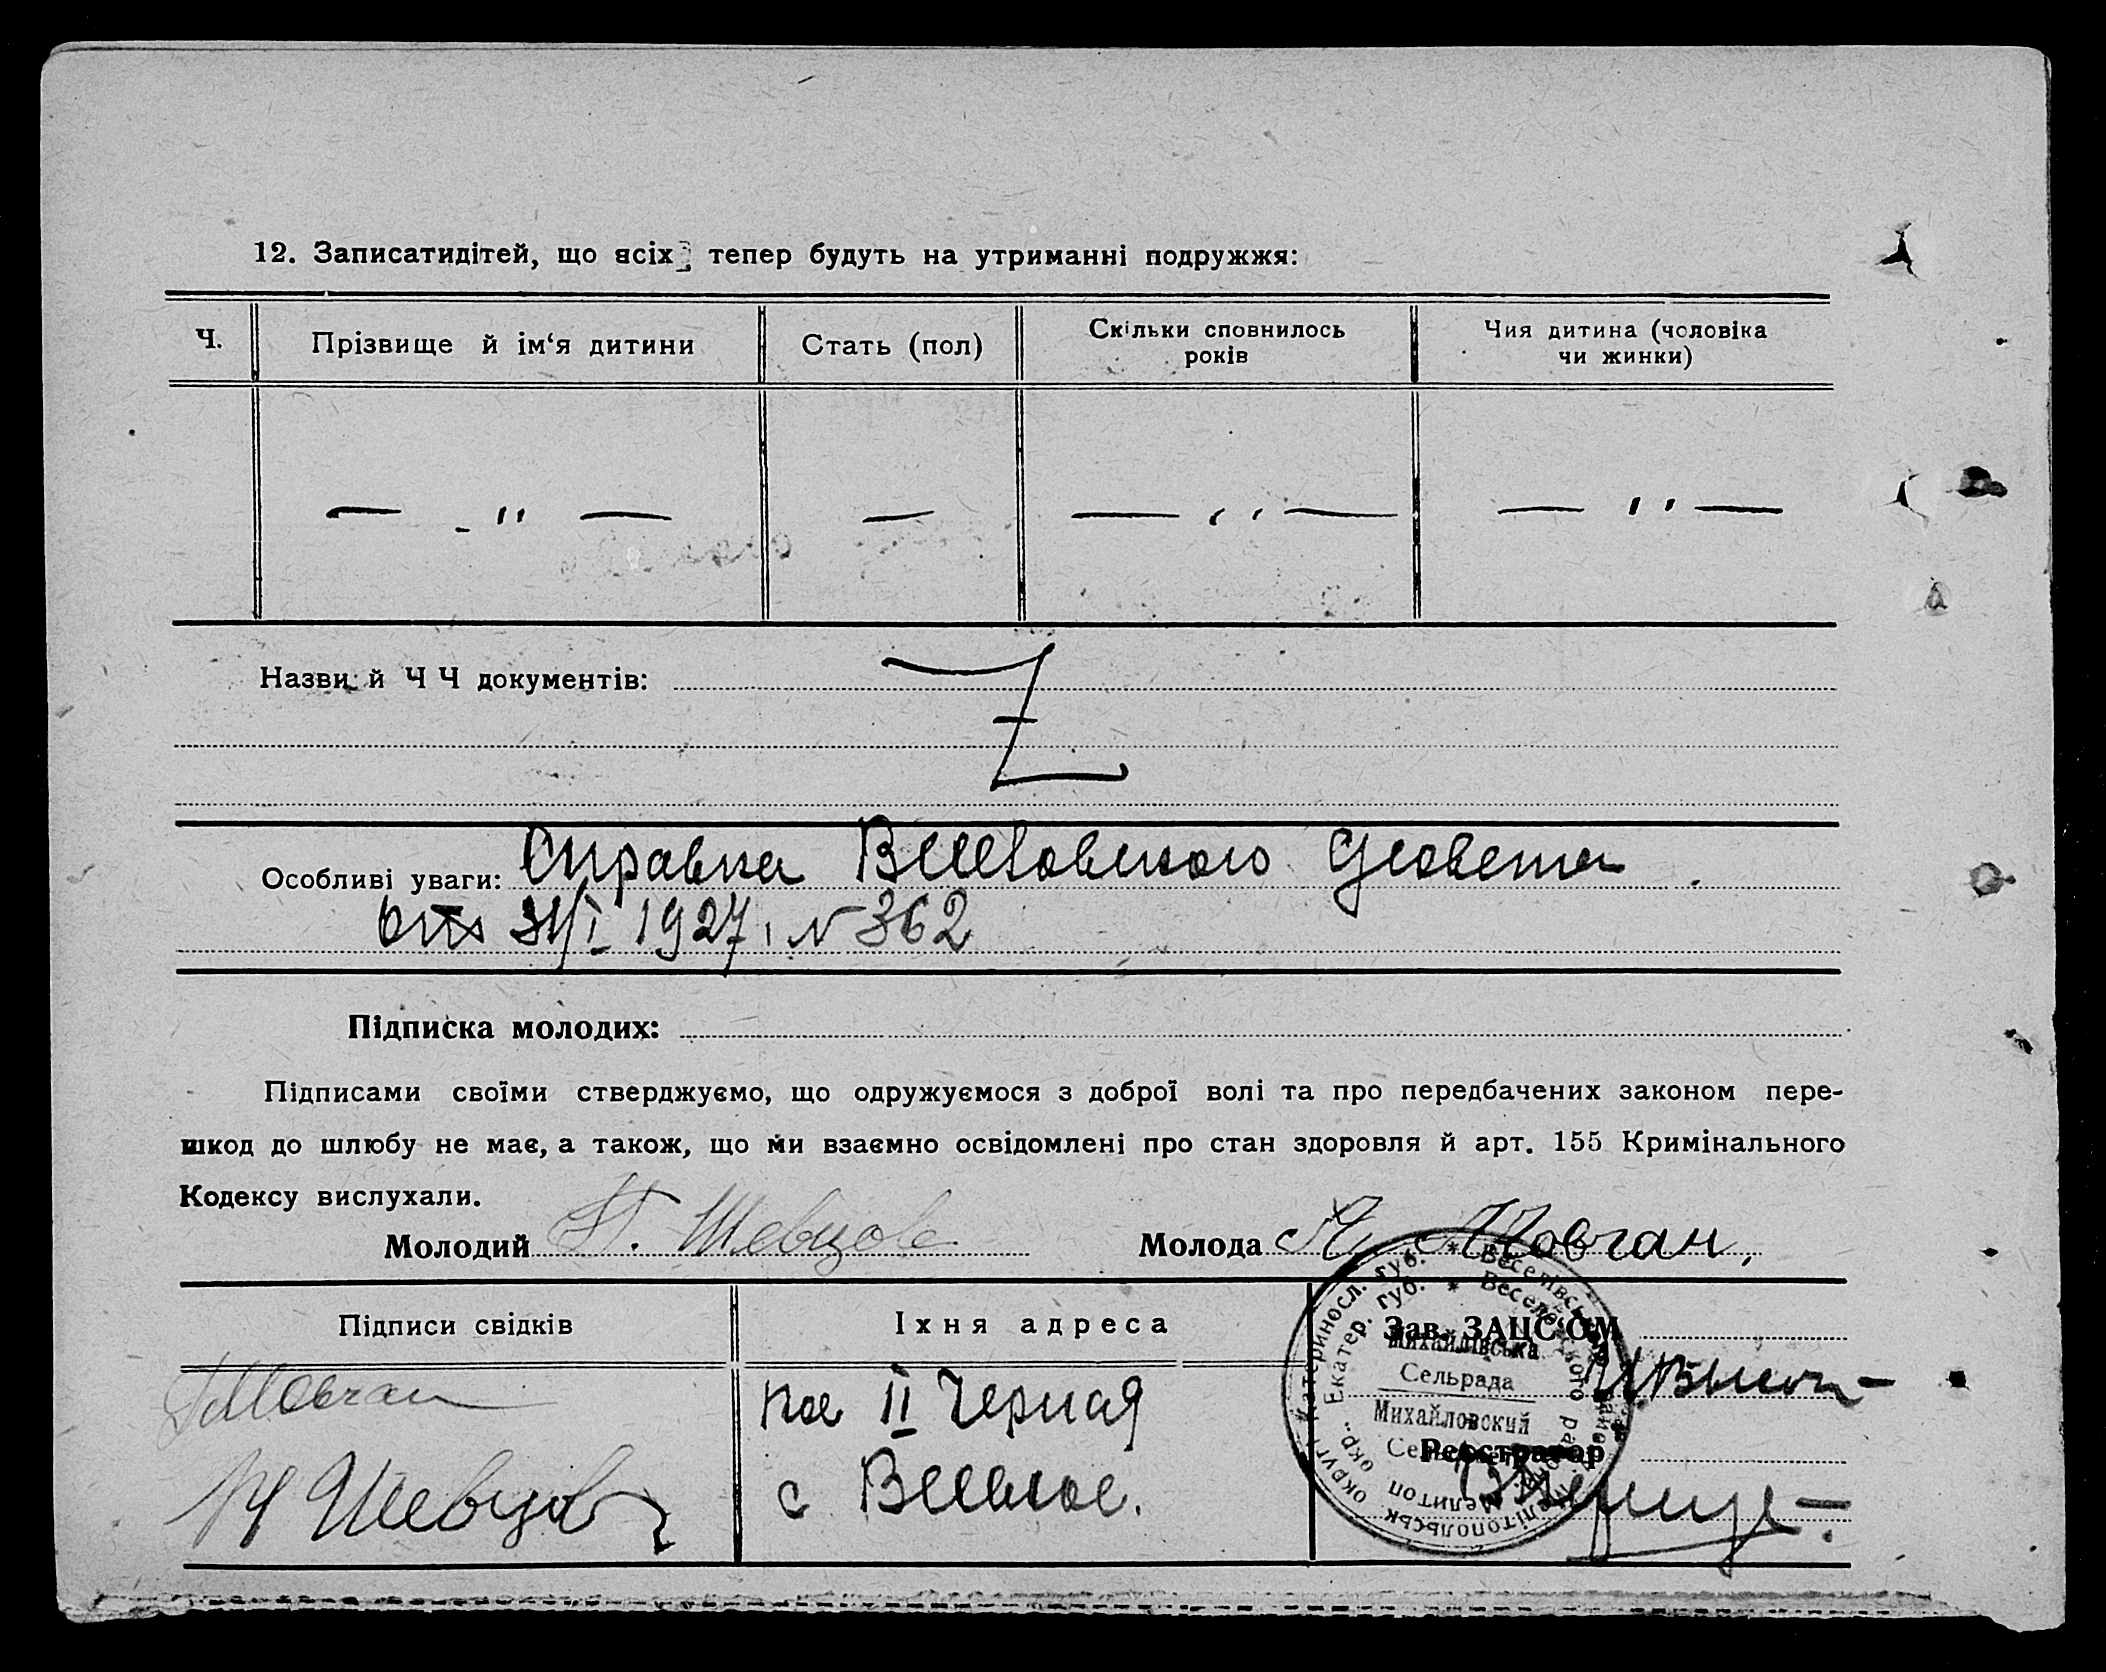 12. Записатидітей, що всіх тепер будуть на утриманні подружжя:
Ч.
Прізвище й ім‘я дитини
Стать (пол)
Скільки сповнилось
років
Чия дитина (чоловіка
чи жинки)
— „ —
—
— „ —
— „ —
Назви й Ч Ч документів:
Z
Особливі уваги: Справка Сновета
1927, № 362
Підписка молодих:
Підписами своїми стверджуємо, що одружуємося з доброї волі та про передбачених законом пере-
шкод до шлюбу не має, а також, що ми взаємно освідомлені про стан здоровля й арт. 155 Кримінального
Кодексу вислухали.
Молодий Шевцов
Молода Мовчан,
Підписи свідків
Їхня адреса
Зав. ЗАЦС‘ОМ
Мовчан
Шевцов
пос II Черная
с Веселое.
Реєстратор
Михайлівська
Сельрада
Михайловский